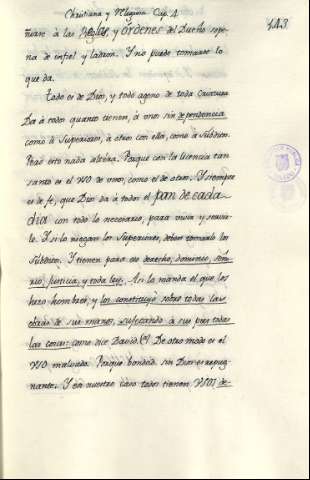 Christiana y Magna Cap. 4
143
marse à las Reglas, y órdenes del Dueño so pe-
na de infiel y ladron. Y no puede tomarse lo
que da.
Todo es de Dios, y todo ageno de toda Criatura
Da à todos quanto tienen, à unos sin dependencia
como à Superiores, à otros con ella, como à Subditos.
Pero esto nada altera. Porque con la licencia tan
santo es el uso de unos, como el de otros. Y siempre
es de fe, que Dios da à todos el pan de cada
dia con todo lo necesario, para vivir y servir-
le. Y si lo niegan los Superiores, deben tomarlo los
Subditos. Y tienen para eso derecho, dominio, seño-
rio, justicia, y toda ley. Asi lo manda el que los
hizo hombres, y los constituyó sobre todas las
obras de sus manos, sujetando à sus pies todas
las cosas: como dice David. De otro modo es el
uso malvado. Porque bondad sin Dios es repug-
nante. Y en nuestro caso todos tienen usos de-